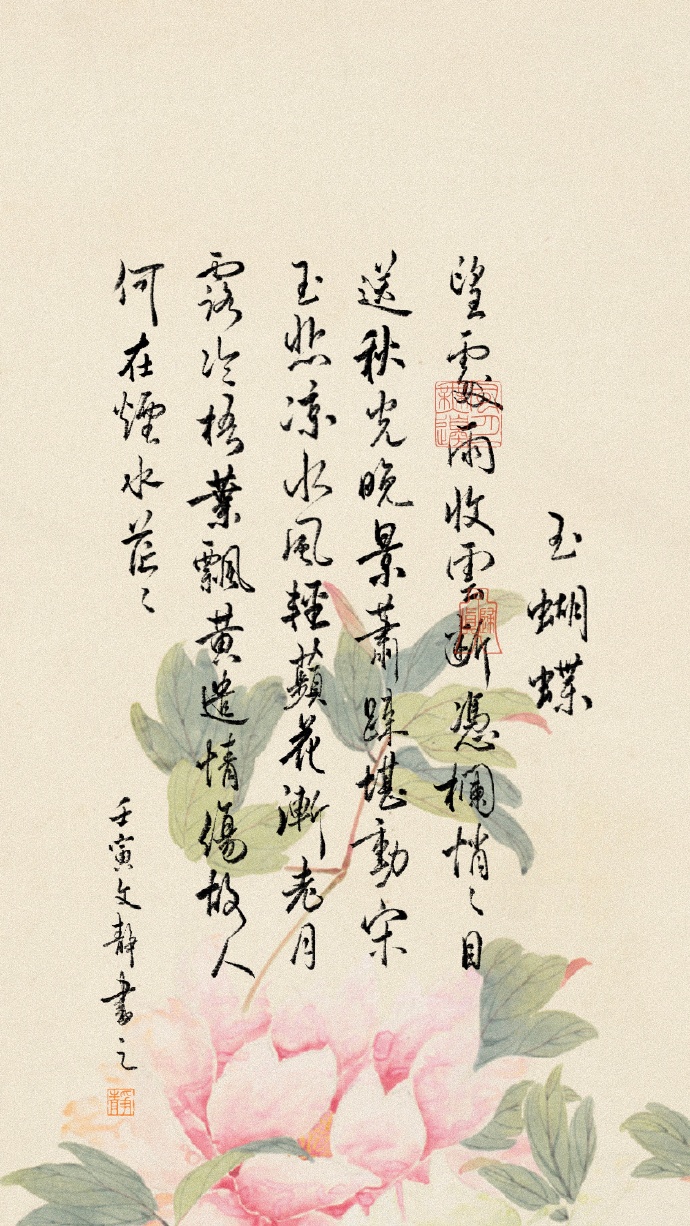 玉蝴蝶
望處雨收雲斷憑欄悄〻目
送秋光晚景蕭疎堪動宋
玉悲凉水風輕蘋花漸老月
露冷梧葉飄黄遣情傷故人
何在煙水茫〻
壬寅文靜書之